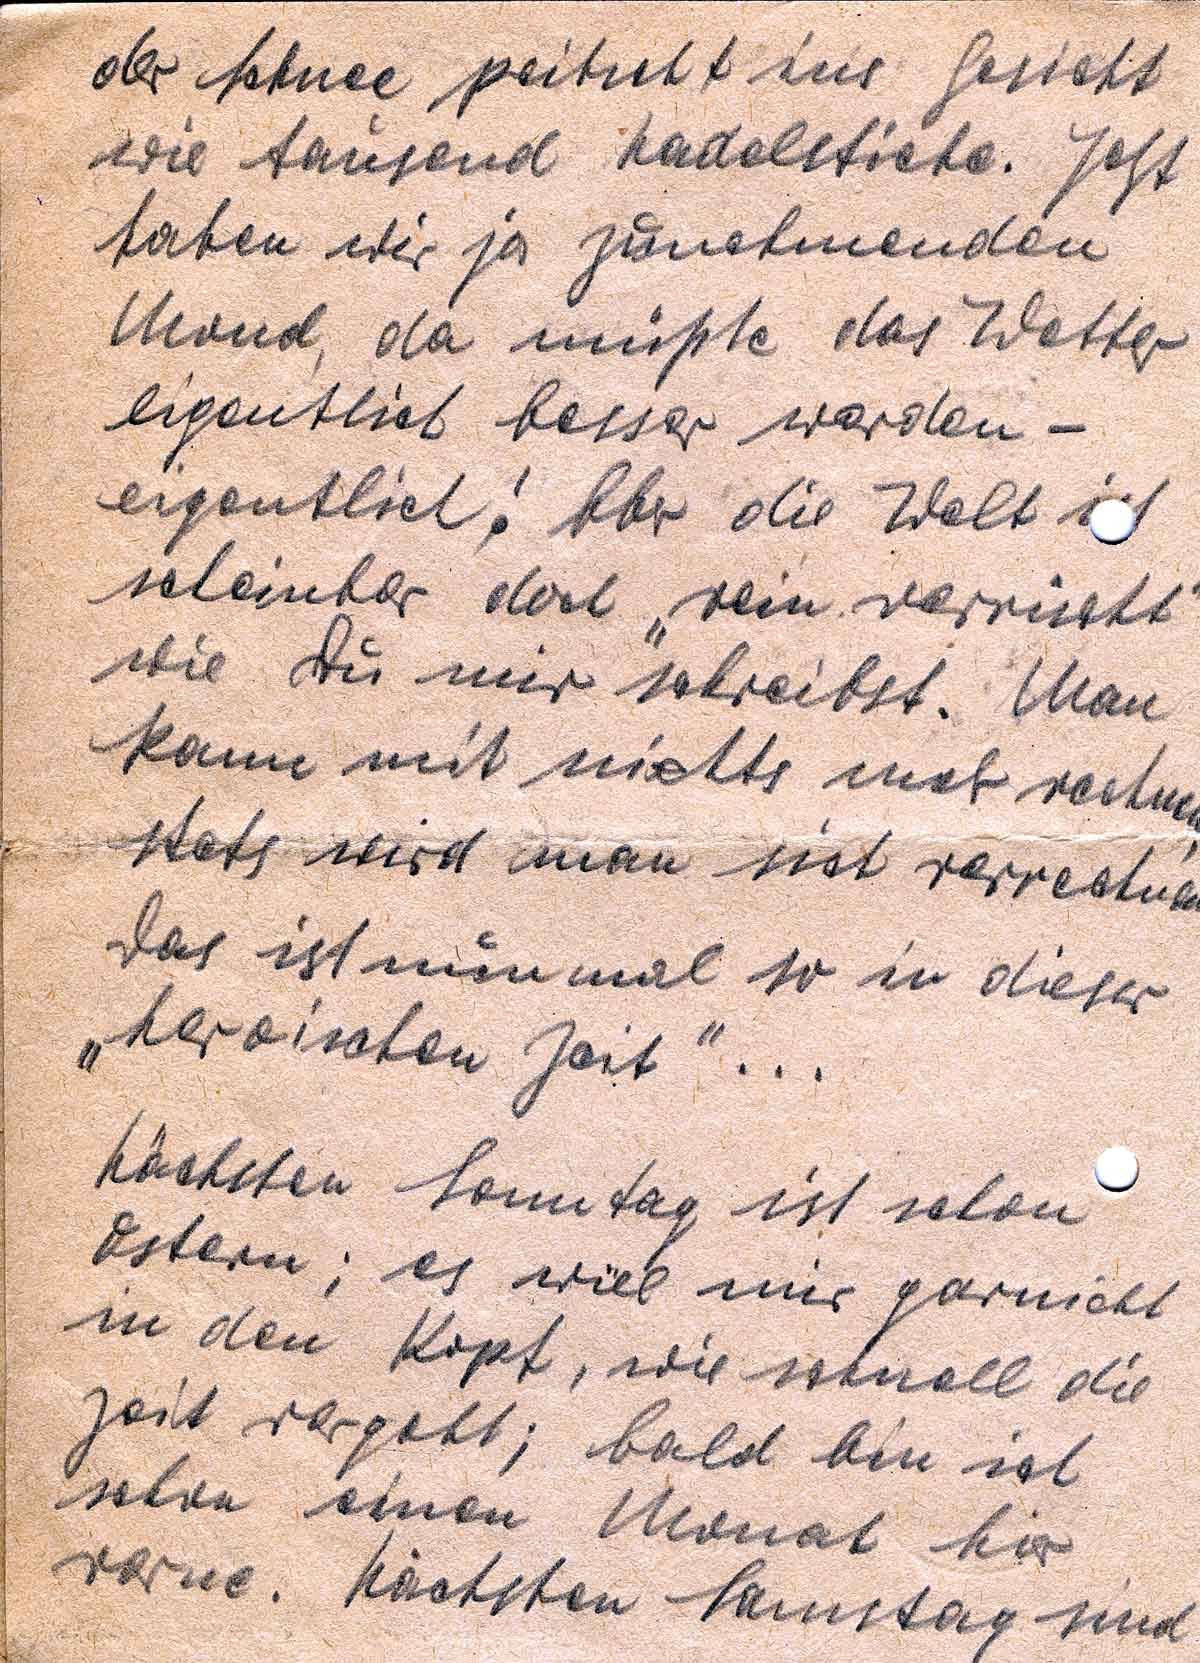 der Schnee peitscht ins Gesicht
wie tausend Nadelstiche. Jetzt
haben wir ja zunehmenden
Mond, da müßte das Wetter
eigentlich besser werden –
eigentlich! Aber die Welt ist
scheinbar doch „rein verrückt"
wie Du mir schreibst. Man
kann mit nichts mehr rechnen,
stets wird man sich verrechnen
Das ist nun mal so in dieser
„heroischen Zeit"...
Nächsten Sonntag ist schon
Ostern; es will mir garnicht
in den Kopf, wie schnell die
Zeit vergeht; bald bin ich
schon einen Monat hier
vorne. Nächsten Samstag sind